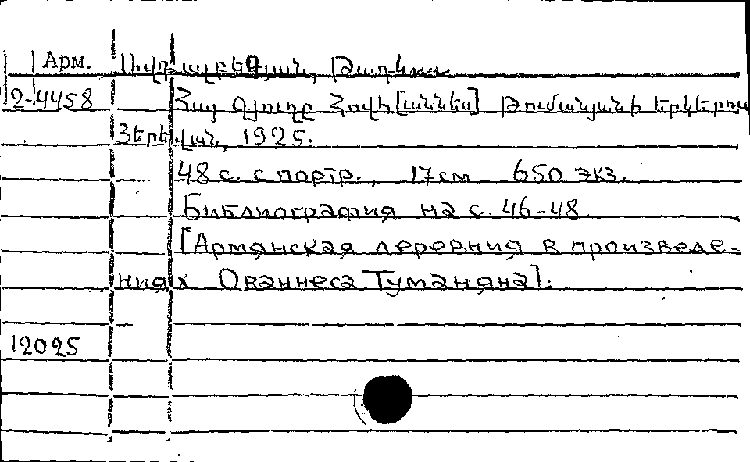 Арм. Ավդալբեգյան, Թադևոս
2-4458 Հայ Գյուղը Հովհ[աննես] Թումանյանի երկերում
Յերևան, 1925.
48 с. с портр., 17 см 650 экз.
Библиография на с. 46-48.
[Армянская деревня в произведе-
ниях Ованнеса Туманяна].
12025